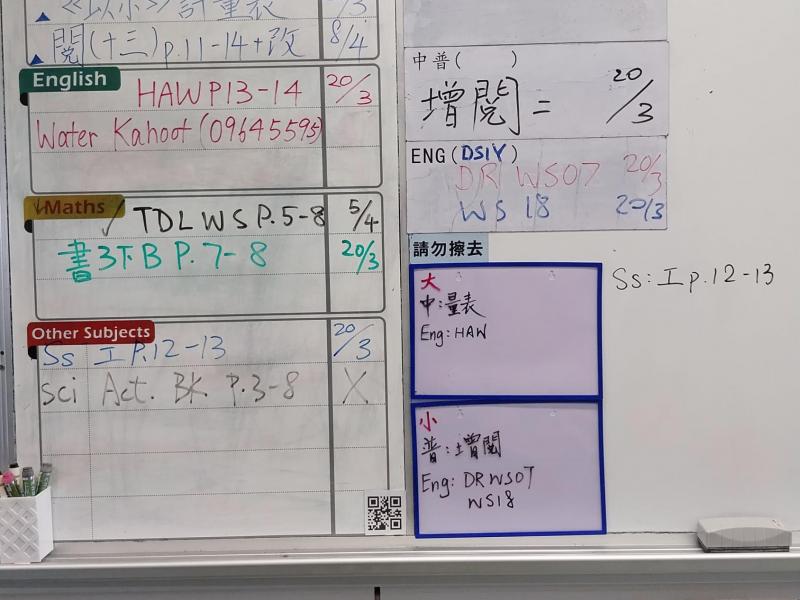 《以小》計量表
閱(十三)p.11-14+改 8/4
English
HAW P13-14 20/3
Water Kahoot (09645595)
Maths
✓ TDL WS P.5-8 5/4
書3下B P.7-8 20/3
Other Subjects
Ss 工 P.12-13 20/3
Sci Act. BK. P.3-8 X
中普( )
增閱 = 20/3
ENG(DSIY)
DR WS07 20/3
WS 18 20/3
請勿擦去
大
中:量表
Eng: HAW
小
普:增閱
Eng: DRWS07
WS18
Ss: 工 p.12-13